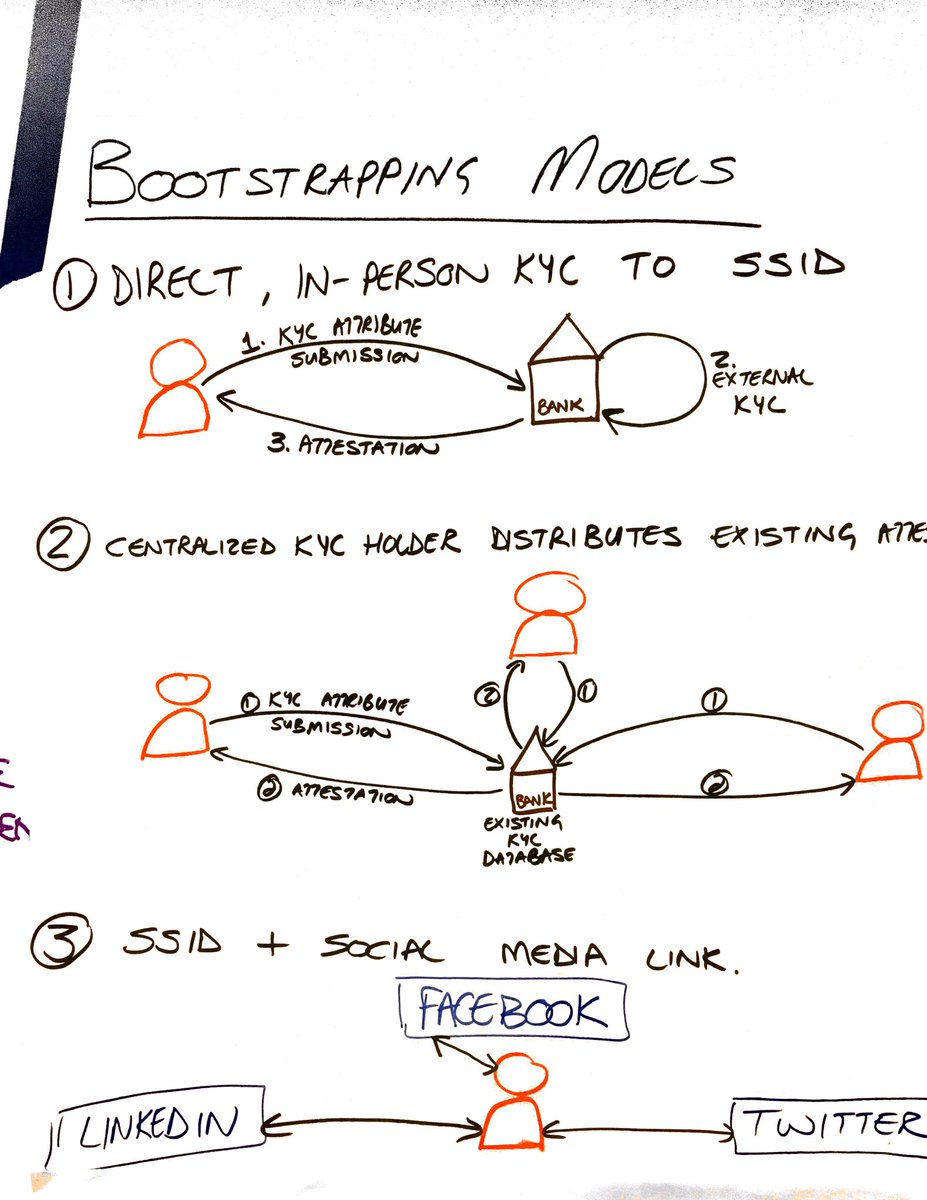 BOOTSTRAPPING MODELS
① DIRECT, IN-PERSON KYC TO SSID
1. KYC ATTRIBUTE
SUBMISSION
BANK
2.
EXTERNAL
KYC
3. ATTESTATION
② CENTRALIZED KYC HOLDER DISTRIBUTES EXISTING
① KYC ATTRIBUTE
SUBMISSION
② ATTESTATION
②
①
①
②
BANK
EXISTING
KYC
DATABASE
③ SSID + SOCIAL MEDIA LINK.
FACEBOOK
LINKEDIN
TWITTER